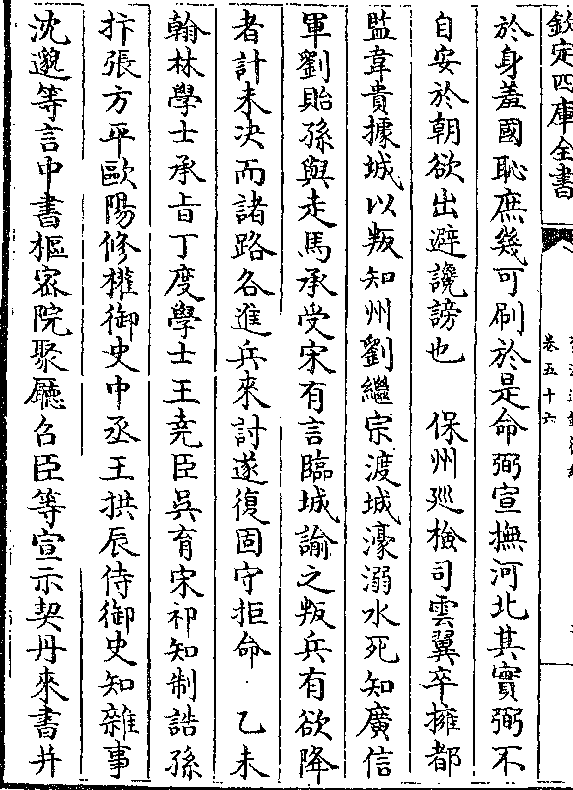 欽定四庫全書
卷五十六
於身羞國恥庶幾可刷於是命弼宣撫河北其實弼不
自安於朝欲出避讒謗也　保州廵檢司雲翼卒擁都
監韋貴據城以叛知州劉繼宗渡城濠溺水死知廣信
軍劉貽孫與走馬承受宋有言臨城諭之叛兵有欲降
者計未決而諸路各進兵來討遂復固守拒命　乙未
翰林學士承旨丁度學士王堯臣吳育宋祁知制誥孫
抃張方平歐陽修權御史中丞王拱辰侍御史知雜事
沈邈等言中書樞密院聚廳召臣等宣示契丹來書并